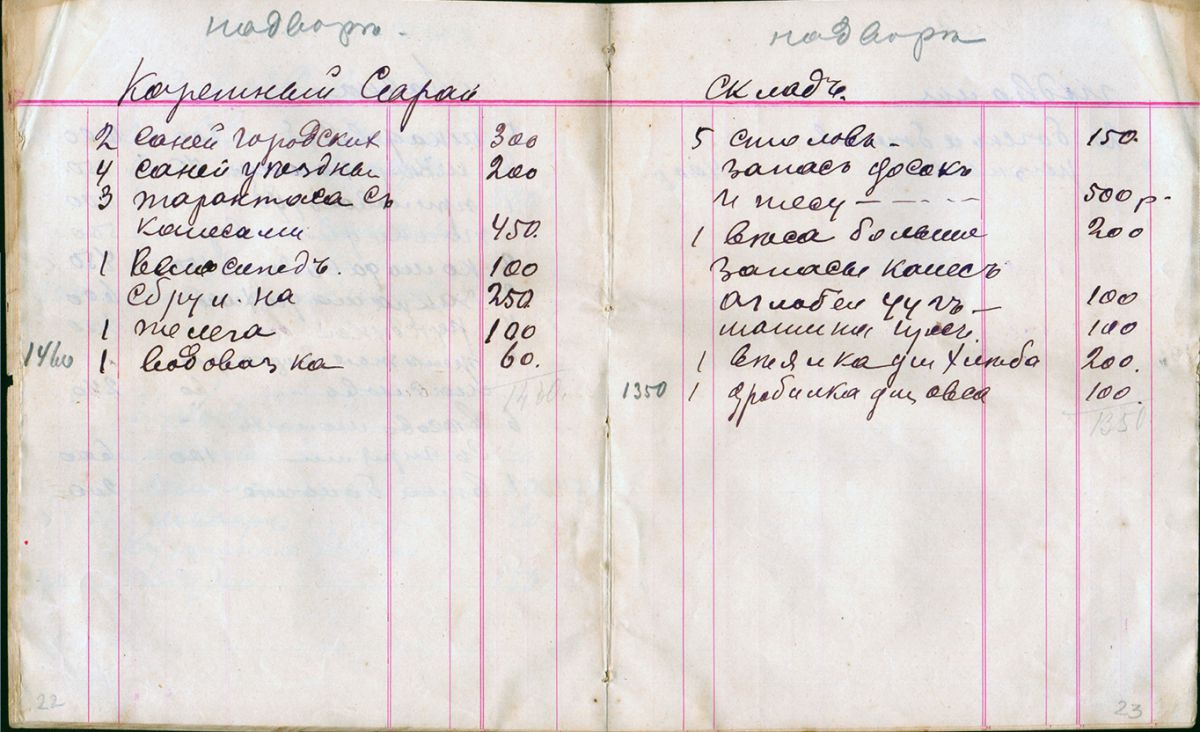 надворъ.
Каретный Сарай
2 саней городских 300
4 саней уездны 200
3 тарантаса съ
колесами 450.
1 Велосипедъ. 100
сбруи на 250
1 телега 100
1460 1 водовозка 60.
22
надворъ
складъ.
5 столовъ - 150.
запасъ досокъ
и тесу - - - - - 500 р.
1 весы больше 200
запасы колесъ
аглобел дугъ - 100
машина 100
1 веялка для хлеба 200.
1350 1 дробилка для овса 100.
1350.
23